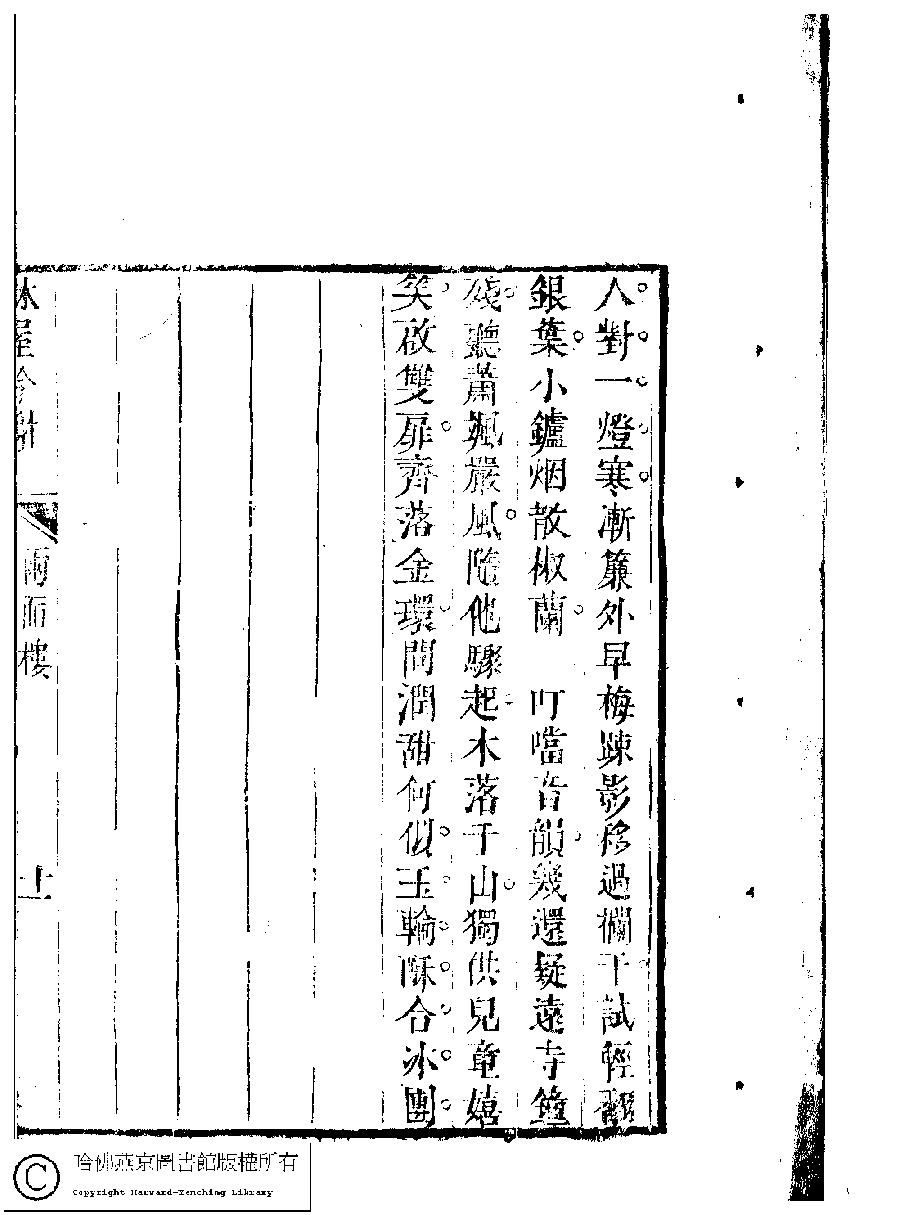 人對一燈寒漸簾外早梅踈影移過欄干試輕翻
銀葉小鑪烟散椒蘭　叮噹音韻幾還疑遠寺鐘
殘聽蕭颯嚴風隨他驟起木落千山獨供兒童嬉
笑啟雙扉齊落金環問潤甜何似玉輪酥合冰團
雨
樓
十一
哈佛燕京圖書館版權所有
Copyright Harvard-Yenching Library